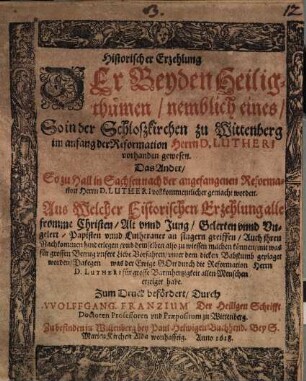 3.
12
Historischer Erzehlung
DEr Beyden Heilig-
thümen / nemblich eines /
So in der Schloßkirchen zu Wittenberg
im anfang der Reformation Herrn D. LUTHERI
vorhanden gewesen.
Das Ander /
So zu Hall in Sachsen nach der angefangenen Reforma-
tion Herrn D. LUTHERI vollkömmenlicher gemacht worden.
Aus Welcher Historischen Erzehlung alle
fromme Christen / Alt vnnd Jung / Gelerten vnnd Vn-
gelert / Papisten vnnd Lutheraner
Nachkommen
für grossen Betrug unsere liebe Vorfahren / unter dem dicken Babstumb geplagt
worden: Dagegen was der Ewige GOtt durch der Reformation Herrn
D. LUTHERI für grosse Barmhertzigkeit allen Menschen
erzeiget habe.
Zum Druck befördert / Durch
WOLFFGANG. FRANZIUM Der Heiligen Schrifft
Doctoren Professoren vnd Præpositum zu Wittenberg.
Zu befinden in Wittenberg bey Paul Helwigen Buchhend. Bey S.
Marien Kirchen Alda wonhafftig. Anno 1618.